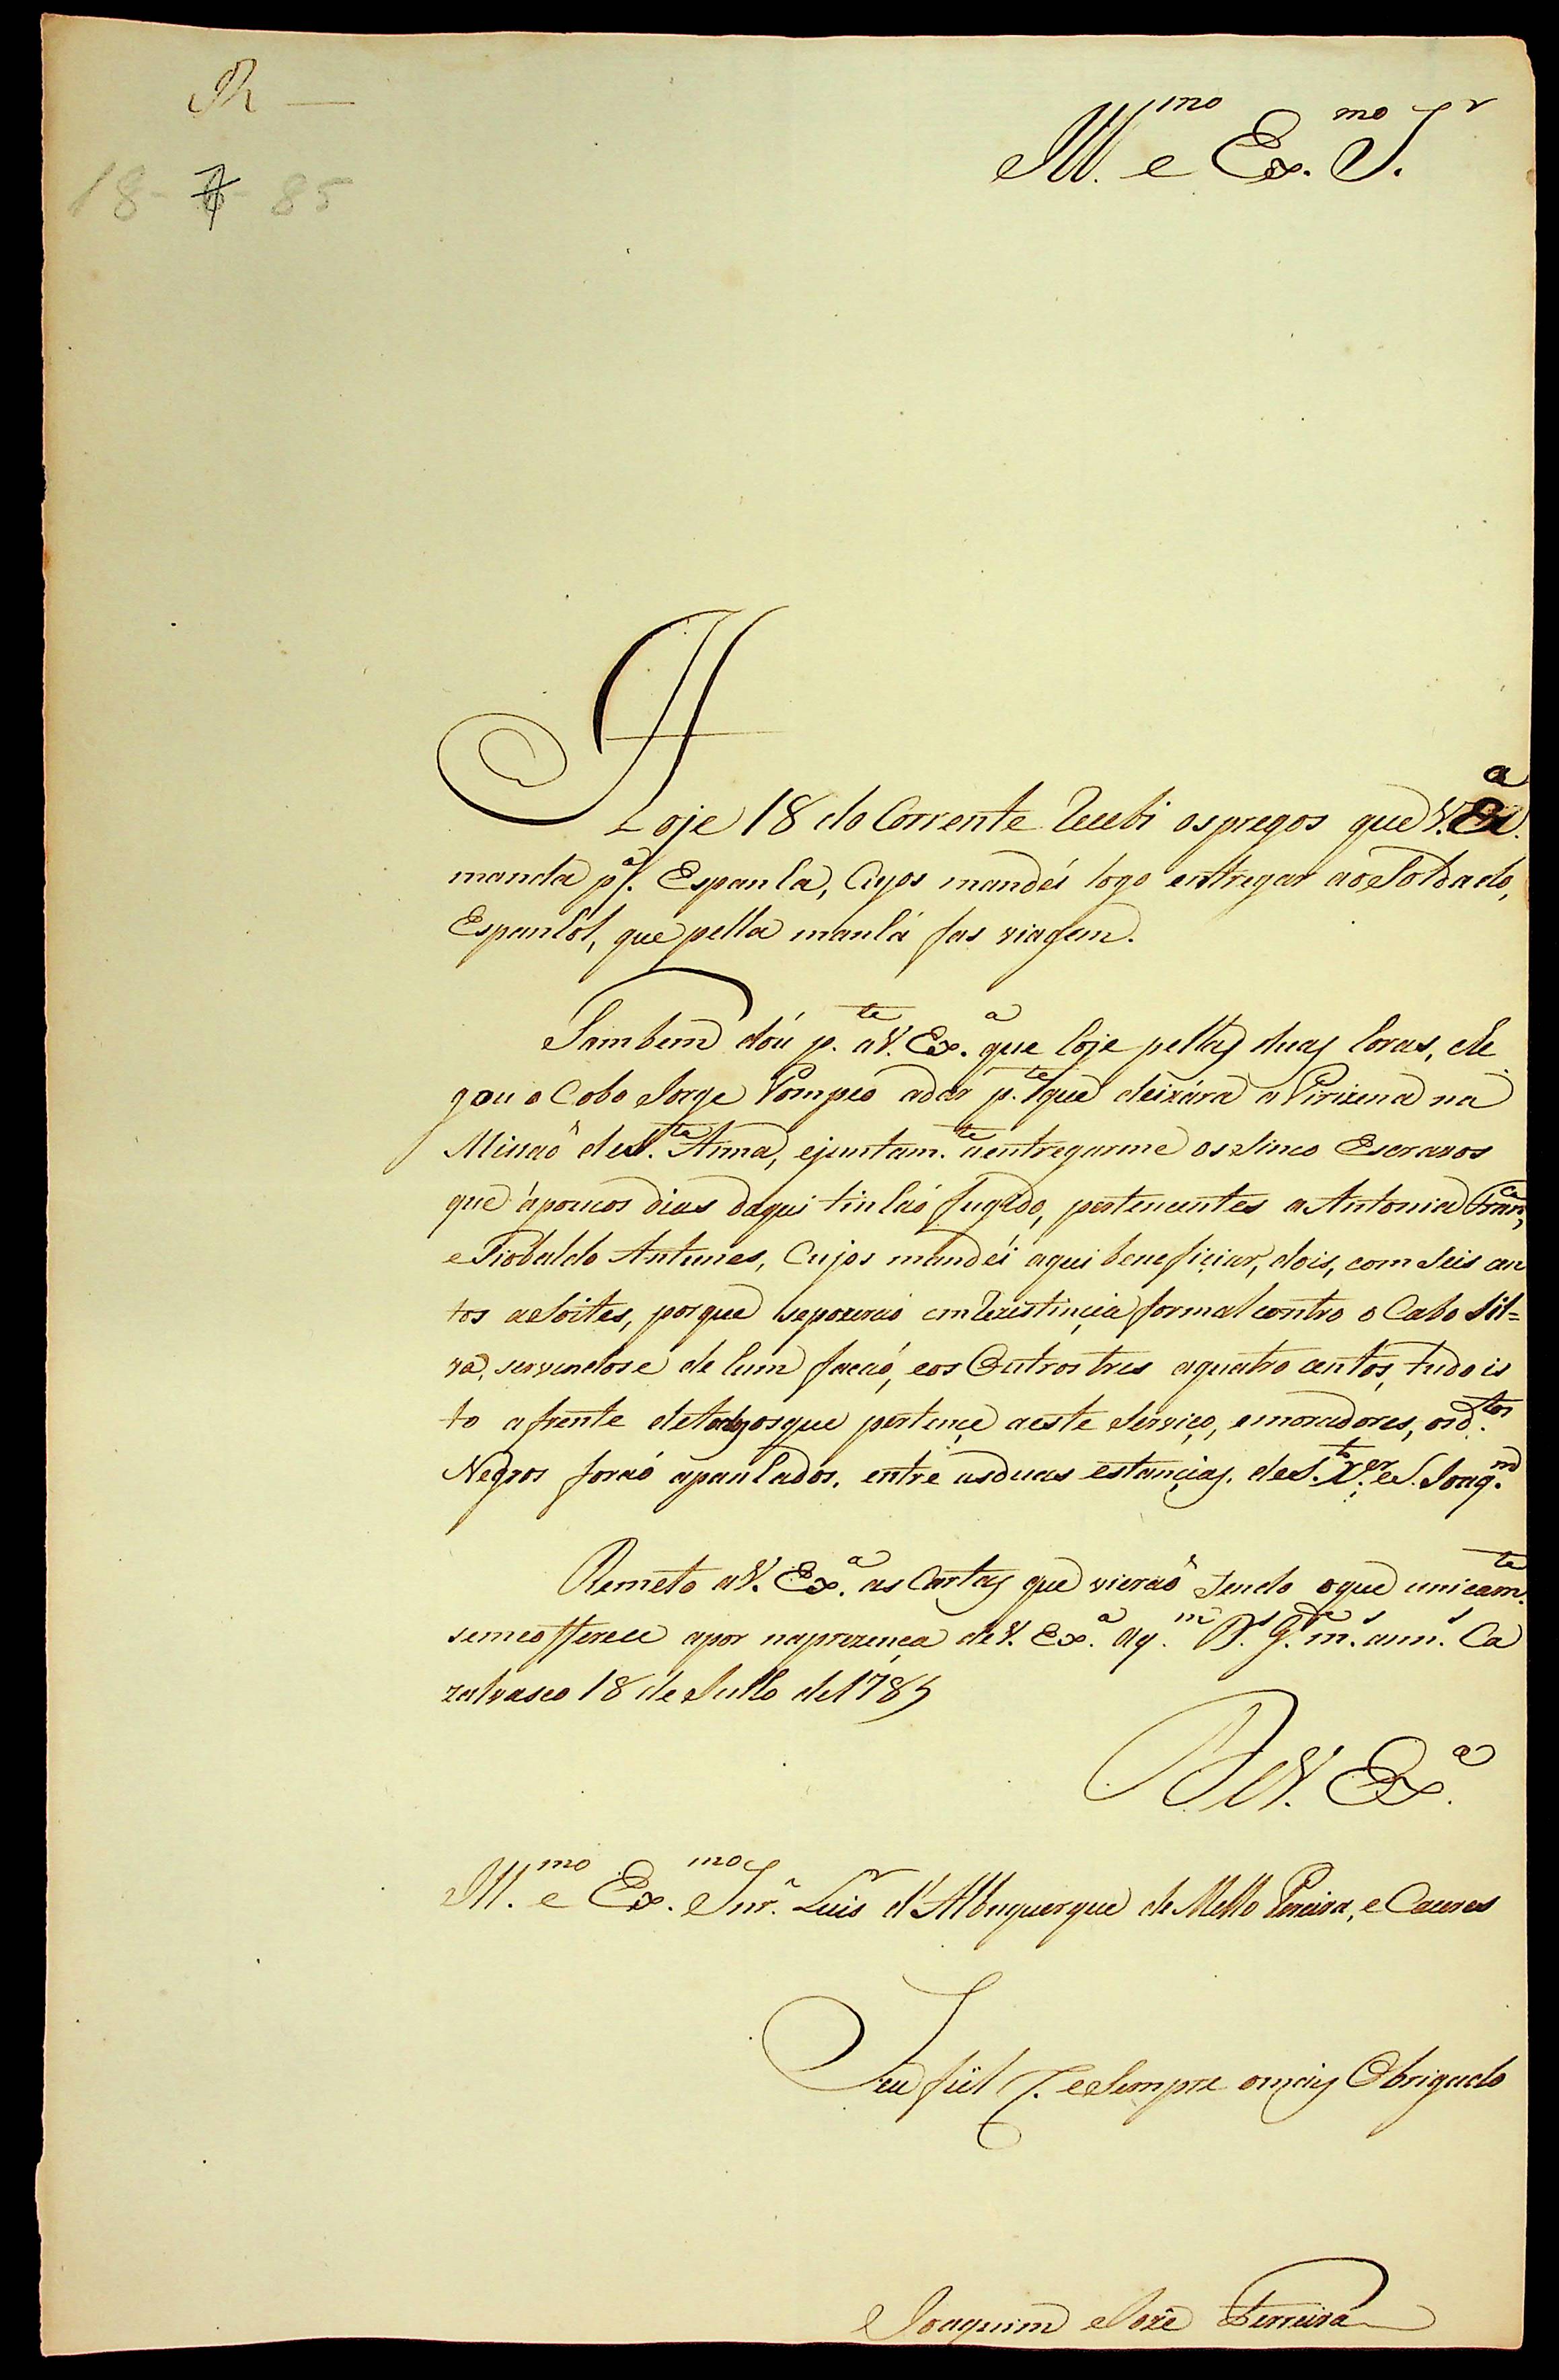 R —
18-7-85
Ill.mo e Ex.mo S.r
Hoje 18 do Corrente recebi os pregos que V. Ex.a
manda p.a Espanha, Cujos mandei logo entregar ao Soldado,
Espanhol, que pella manhá fas viagem.
Tambem dou p.te a V. Ex.a que hoje pellas duas horas, che
gou o Cabo Jorge Pompeo a dar p.te que deixára a Pirixena na
Missaõ de S.ta Anna, e juntam.te a entregarme os sinco Escravos
que á poucos dias daqui tinhaõ fugido, pertencentes a Antonia Fran.ca,
e Tiobaldo Antunes, Cujos mandei aqui beneficiar, dois, com seis cen
tos asoites, porque se pozeraõ em rezistincia formal contro o Cabo Sil=
va, servindose de hum facaõ, e os Outros tres a quatro centos, tudo is
to a frente de todos os que pertençe a este serviço, e moradores, os d.tos
Negros foraõ apanhados, entre as duas estancias, de S.ta X.er e S. Joaq.m
Remeto a V. Ex.a as Cartas que vieraõ sendo o que unicam.te
se me offerece a por na prezença de V. Ex.a aq.m D.s g.de m.s ann.s Ca
zalvasco 18 de Julho de 1785
De V. Ex.a
Ill.mo e Ex.mo Snr. Luis d'Albuquerque de Mello Pereira, e Caceres
Seu fiel S. e Sempre o mais Obrigado
Joaquim Jozé Ferreira